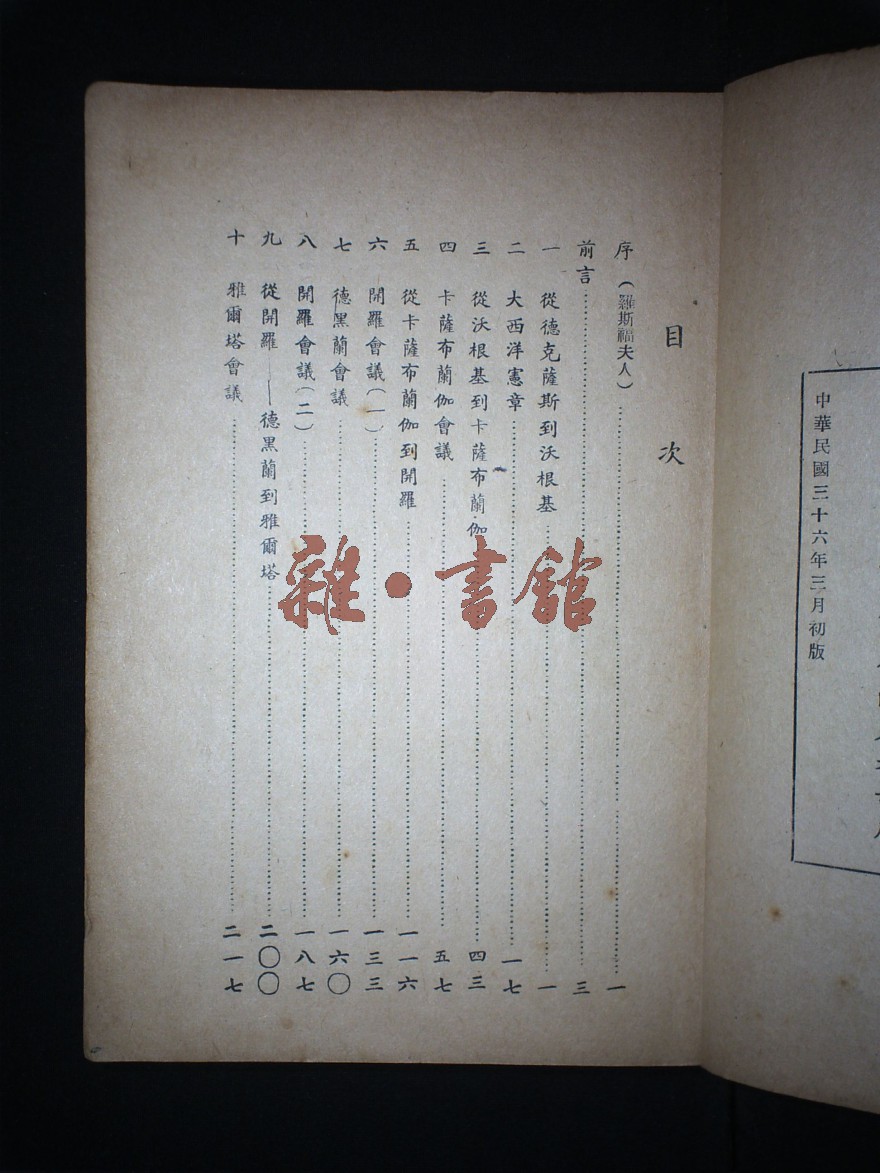 中華民國三十六年三月初版
目次
序（羅斯福夫人）……一
前言……三
一 從德克薩斯到沃根基……一
二 大西洋憲章……一七
三 從沃根基到卡薩布蘭伽……四三
四 卡薩布蘭伽會議……五七
五 從卡薩布蘭伽到開羅……一一六
六 開羅會議（一）……一三三
七 德黑蘭會議……一六〇
八 開羅會議（二）……一八七
九 從開羅——德黑蘭到雅爾塔……二〇〇
十 雅爾塔會議……二一七
雜·書館